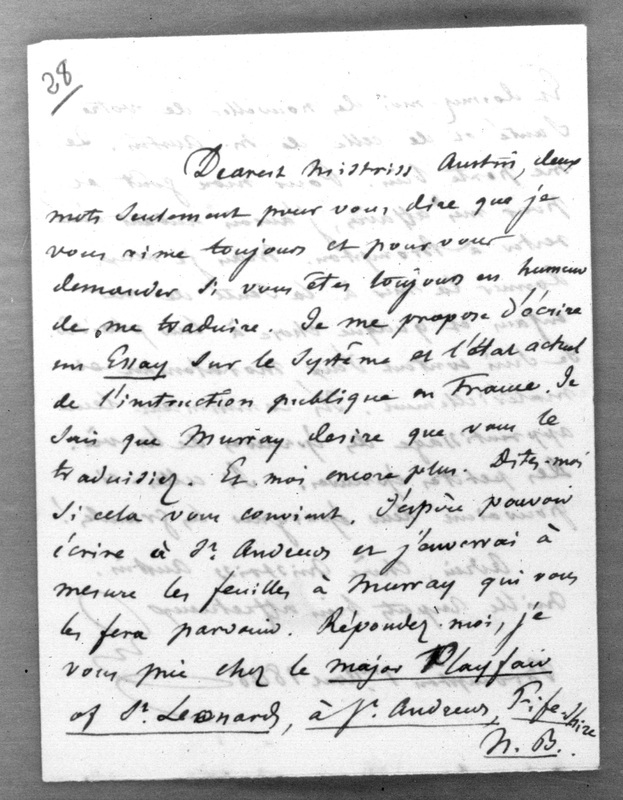 28
Dearest Mistriss Austin, deux
mots seulement pour vous dire que je
vous aime toujours et pour vous
demander si vous êtes toujours en humeur
de me traduire. Je me propose d'écrire
un Essay sur le système et l'état actuel
de l'instruction publique en France. Je
sais que Murray desire que vous le
traduisiez. Et moi encore plus. Dites-moi
si cela vous convient. J'espère pouvoir
écrire à St. Andrews et j'enverrai à
mesure les feuilles à Murray qui vous
les fera parvenir. Répondez-moi, je
vous prie chez le major Playfair
of St. Leonards, à St. Andrews, Fife-shire
N. B.